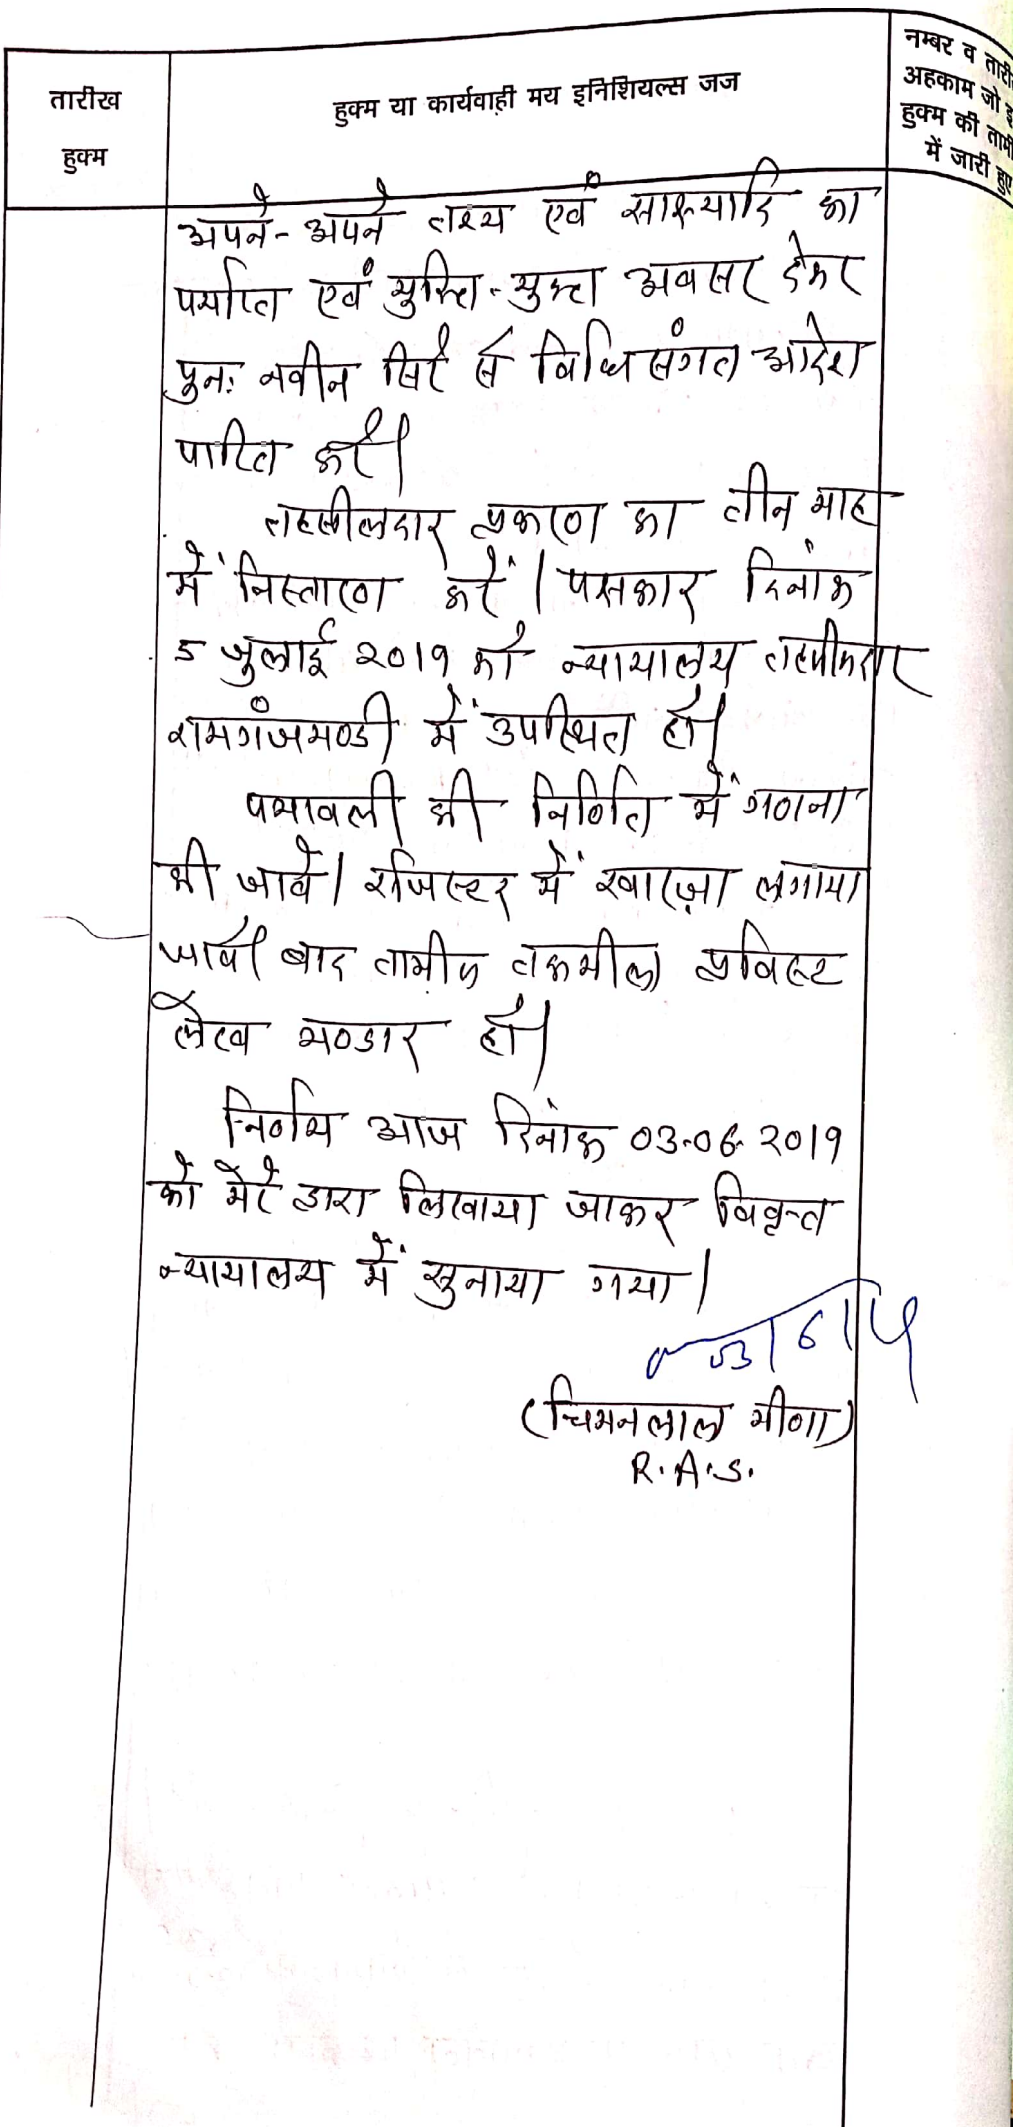 तारीख
हुक्म
हुक्म या कार्यवाही मय इनिशियल्स जज
नम्बर व तारी
अहकाम जो इ
हुक्म की तामी
में जारी हुए
अपने-अपने तथ्य एवं साक्ष्यादि का
पर्याप्त एवं युक्ति-युक्त अवसर देकर
पुनः नवीन सिरे से विधिसंगत आदेश
पारित करें।
तहसीलदार प्रकरण का तीन माह
में निस्तारण करें। पक्षकार दिनांक
5 जुलाई 2019 को न्यायालय तहसीलदार
रामगंजमण्डी में उपस्थित हों।
पत्रावली की निर्णित में गणना
की जावे। रजिस्टर में खारज़ा लगाया
जावे। बाद तामील तकमील प्रविष्ट
लेख भण्डार हो।
निर्णय आज दिनांक 03-06-2019
को मेरे द्वारा लिखाया जाकर विवृत्त
न्यायालय में सुनाया गया।
(चिमनलाल मीणा)
R.A.S.